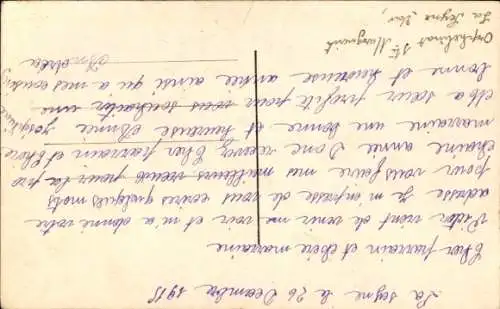 La Seyne le 26 Decembre 1915
Cher parrain et chère marraine
Victor vient de venir me voir et m'a donne votre
adresse je m'empresse de vous ecrires quelques mots
pour vous faire mes meilleurs voeux pour la pro
chaine année Donc recevez Cher parrain et Chère
marraine une bonne et heureuse Année Joséphine
et ma soeur profite pour vous souhaiter une
bonne et heureuse année ainsi qu'a mes cousins
Orphelinat Ste Marguerite
La Seyne Var